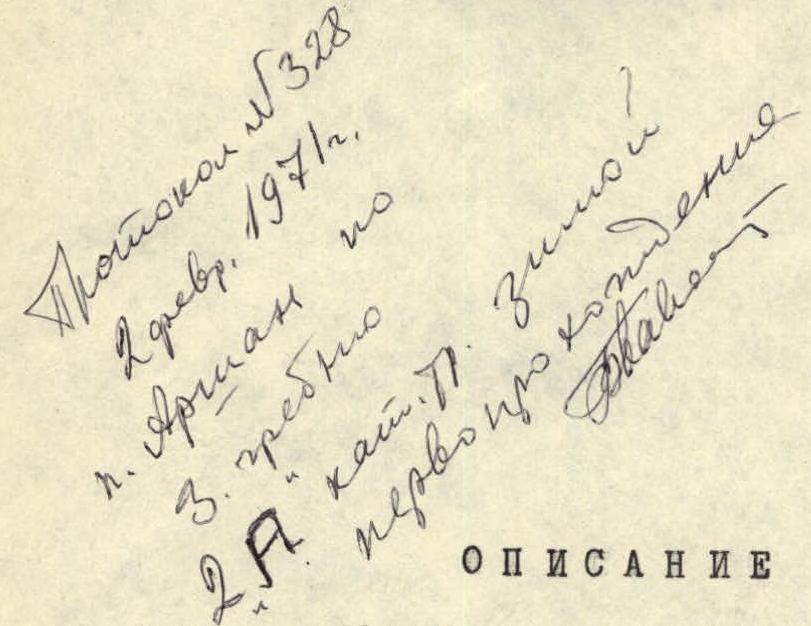 Протокол №328
2 февр. 1971г.
п. Аршан по
З. гребню
2"А" кат. тр. зимой
первопрохождение
ОПИСАНИЕ